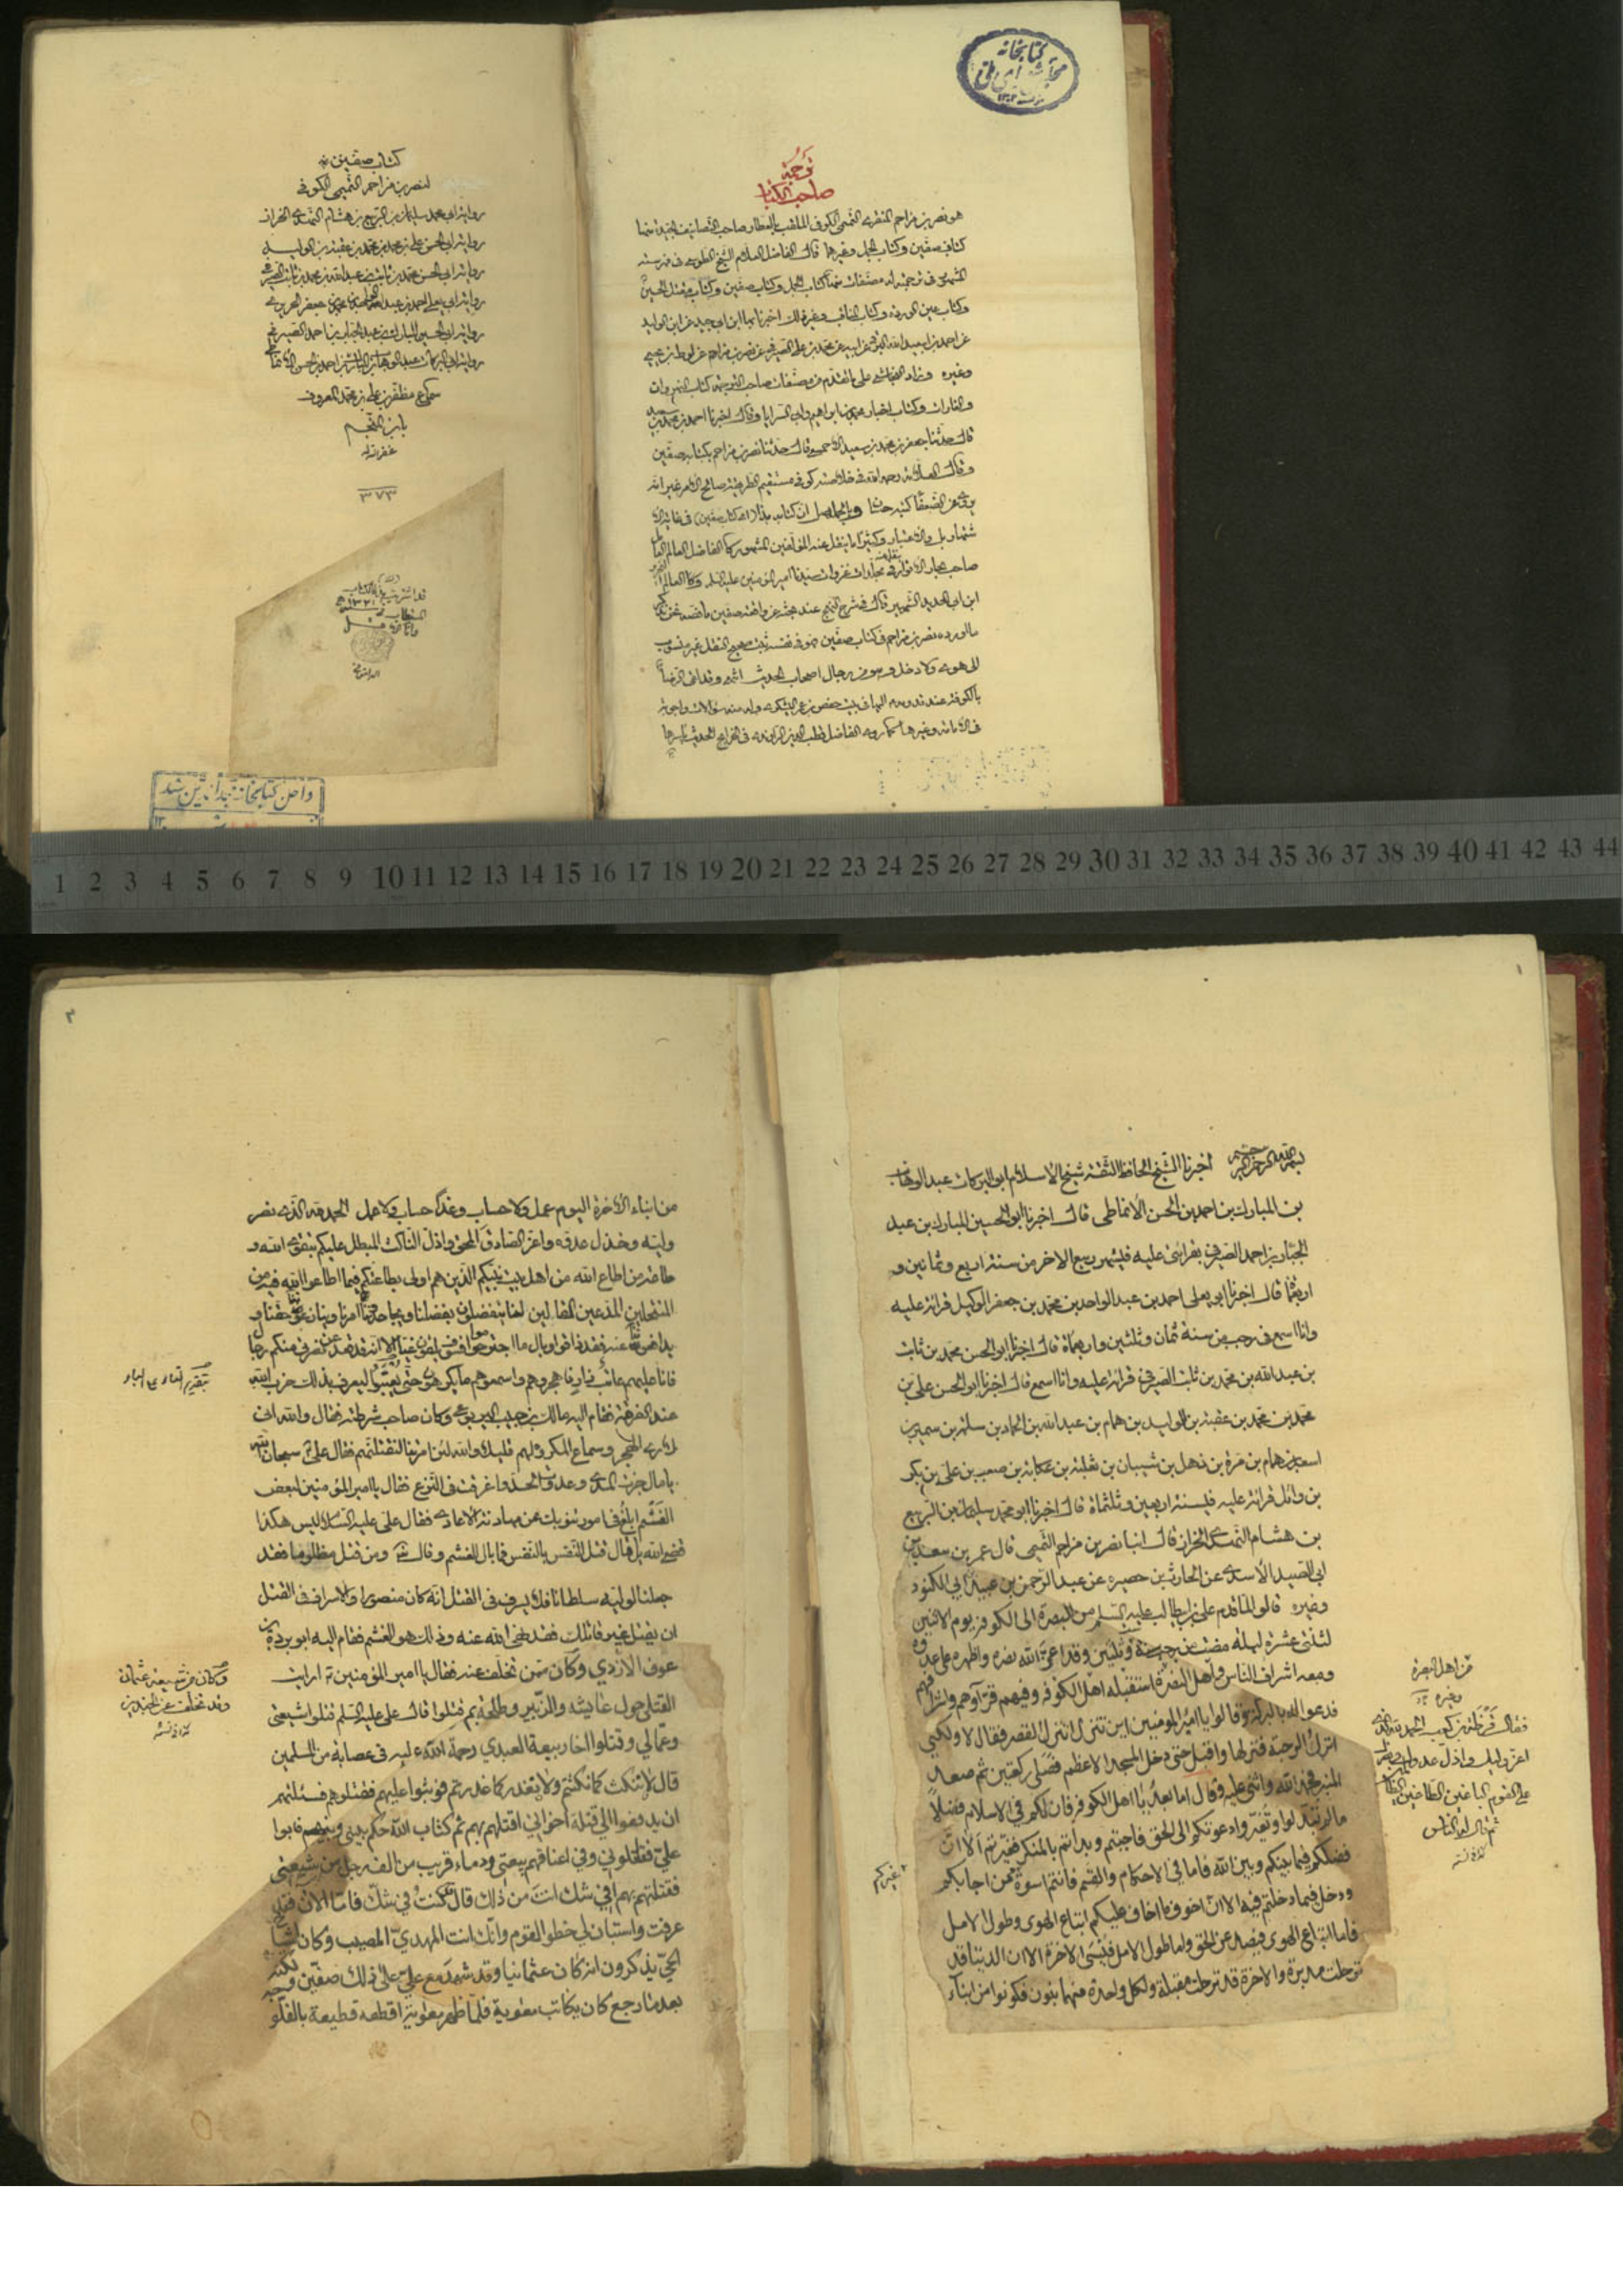 كتابخانه
ترجمة
صاحب الكتاب
هو نصر بن مزاحم المنقري التميمي الكوفي الملقب بالعطار صاحب التصانيف الجيدة منها
كتاب صفين وكتاب الجمل وغيرهما قال الفاضل العلام الشيخ الطوسي في فهرسته
الشهير في ترجمته له مصنفات منها كتاب الجمل وكتاب صفين وكتاب مقتل الحسين
وكتاب عين الوردة وكتاب المناقب وغير ذلك اخبرنا بها ابن ابي جيد عن ابن الوليد
عن احمد بن ابي عبد الله البرقي عن ابيه عن محمد بن علي الصيرفي عن نصر بن مزاحم عن لوط بن يحيى
وغيره وزاد النجاشي على ما تقدم من مصنفات صاحب الترجمة كتاب النهروان
والغارات وكتاب اخبار محمد بن ابراهيم وابي السرايا وقال اخبرنا احمد بن محمد بن سعيد
قال حدثنا جعفر بن محمد بن سعيد الاحمسي قال حدثنا نصر بن مزاحم بكتابه صفين
وقال العلامة رحمه الله في خلاصته كوفي مستقيم الطريقة صالح الامر غير انه
يروي عن الضعفا كتبه حسان وبالجملة ان كتابه هذا اي كتاب صفين في غاية الا
شتهار بل والاعتبار وكثيرا ما ينقل عنه المؤلفين المشهورين كالفاضل العالم
صاحب بحار الانوار في مجلدات غزوات سيدنا امير المؤمنين عليه السلم وكالعالم
ابن ابي الحديد الشهير قال في شرح النهج عند بحثه عن واقعة صفين ما نصه نحن نذكر
ما اورده نصر بن مزاحم في كتاب صفين فهو في نفسه ثبت صحيح النقل غير منسوب
الى هوى ولا دخل وهو من رجال اصحاب الحديث انتهى
بالكوفة عند قدومه اليها في بيت حفص بن عمر اليشكري وله منه سؤالات واجوبة
في الامامة وغيرها كما رواه الفاضل قطب الدين الراوندي في الخرايج
كتاب صفين
لنصر بن مزاحم التميمي الكوفي
رواية ابي محمد سليمان بن الربيع بن هشام النهدي الخزاز
رواية ابي الحسن علي بن محمد بن محمد بن عقبة بن الوليد
رواية ابي الحسن محمد بن ثابت بن عبد الله بن محمد بن ثابت الصيرفي
رواية ابي يعلى احمد بن عبد الواحد بن محمد بن جعفر الحريري
رواية ابي الحسين المبارك بن عبد الجبار بن احمد الصيرفي
رواية ابي البركات عبد الوهاب بن المبارك بن احمد بن الحسن الانماطي
سماع مظفر بن علي بن محمد المعروف
بابن المنجم
غفر الله له
٣٧٣
وا صن كتابخانه
1 2 3 4 5 6 7 8 9 10 11 12 13 14 15 16 17 18 19 20 21 22 23 24 25 26 27 28 29 30 31 32 33 34 35 36 37 38 39 40 41 42 43 44
١
بسم الله الرحمن الرحيم اخبرنا الشيخ الحافظ الثقة شيخ الاسلام ابو البركات عبد الوهاب
بن المبارك بن احمد بن الحسن الانماطي قال اخبرنا ابو الحسين المبارك بن عبد
الجبار بن احمد الصيرفي بقرائتي عليه في شهر ربيع الاخر من سنة اربع وثمانين و
اربعمأة قال اخبرنا ابو يعلى احمد بن عبد الواحد بن محمد بن جعفر الوكيل قرائة عليه
وانا اسمع في رجب من سنة ثمان وثلثين واربعمأة قال اخبرنا ابو الحسن محمد بن ثابت
بن عبد الله بن محمد بن ثابت الصيرفي قرائة عليه وانا اسمع قال اخبرنا ابو الحسن علي بن
محمد بن محمد بن عقبة بن الوليد بن همام بن عبد الله بن الحماد بن سلمة بن سمير بن
اسعد بن همام بن مرة بن ذهل بن شيبان بن ثعلبة بن عكابة بن صعب بن علي بن بكر
بن وائل قرائة عليه في سنة اربعين وثلثمأة قال اخبرنا ابو محمد سليمان بن الربيع
بن هشام النهدي الخزاز قال انبا نصر بن مزاحم التميمي قال عمر بن سعد بن
ابي الصيد الاسدي عن الحارث بن حصيرة عن عبد الرحمن بن عبيد ابي الكنود
وغيره قالوا لما قدم علي بن ابي طالب عليه السلم من البصرة الى الكوفة يوم الاثنين
لثنتي عشرة ليلة مضت من رجب سنة وثلثين وقد اعز الله نصره واظهره على عدوه
ومعه اشراف الناس واهل البصرة استقبله اهل الكوفة وفيهم قراؤهم واشرافهم
فدعوا له بالبركة وقالوا يا امير المؤمنين اين تنزل اتنزل القصر فقال لا ولكني
انزل الرحبة فنزلها واقبل حتى دخل المسجد الاعظم فصلى ركعتين ثم صعد
المنبر فحمد الله واثنى عليه وقال اما بعد يا اهل الكوفة فان لكم في الاسلام فضلا
ما لم تبدلوا وتغيروا دعوتكم الى الحق فاجبتم وبدأتم بالمنكر فغيرتم الا ان
فضلكم فيما بينكم وبين الله فاما في الاحكام والقسم فانتم اسوة من اجابكم
ودخل فيما دخلتم فيه الا ان اخوف ما اخاف عليكم اتباع الهوى وطول الامل
فاما اتباع الهوى فيصد عن الحق واما طول الامل فينسي الاخرة الا ان الدنيا قد
ترحلت مدبرة والاخرة قد ترحلت مقبلة ولكل واحدة منهما بنون فكونوا من ابناء
غيركم
من اهل البصرة
وغيره
فقال قرظة بن كعب الحمد لله الذي
اعز وليك واذل عدوك ونصرك
على القوم الباغين الطاغين الظالمين
ثم قال ايها الناس
٣
من ابناء الاخرة اليوم عمل ولا حساب وغدا حساب ولا عمل الحمد لله الذي نصر
وليه وخذل عدوه واعز الصادق المحق واذل الناكث المبطل عليكم بتقوى الله و
طاعة من اطاع الله من اهل بيت نبيكم الذين هم اولى بطاعتكم فيما اطاعوا الله فيه من
المنتحلين المدعين المقابلين لنا يتفضلون بفضلنا ويجاحدونا امرنا وينازعونا حقنا و
يدافعونا عنه فقد ذاقوا وبال ما اجترحوا فسوف يلقون غيا الا انه قد قعد عن نصرتي منكم رجال
فانا عليهم عاتب زار فاهجروهم واسمعوهم ما يكرهون حتى يعتبوا ليعرف بذلك حزب الله
عند الفرقة فقام اليه مالك بن حبيب اليربوعي وكان صاحب شرطته فقال والله اني
لارى الهجر وسماع المكروه لهم قليلا والله لئن امرتنا لنقتلنهم فقال علي سبحان الله
يا مال جزت المدى وعدوت الحد واغرقت في النزع فقال يا امير المؤمنين لبعض
الغشم ابلغ في امور تنوبك من مهادنة الاعادي فقال علي عليه السلام ليس هكذا
قضى الله يا مال قتل النفس بالنفس فما بال الغشم وقال ومن قتل مظلوما فقد
جعلنا لوليه سلطانا فلا يسرف في القتل انه كان منصورا والاسراف في القتل
ان يقتل غير قاتلك فقد نهى الله عنه وذلك هو الغشم فقام اليه ابو بردة بن
عوف الازدي وكان ممن تخلف عنه فقال يا امير المؤمنين ارايت
القتلى حول عايشة والزبير وطلحة بم قتلوا قال علي عليه السلم قتلوا شيعتي
وعمالي وقتلوا اخا ربيعة العبدي رحمة الله عليه في عصابة من المسلمين
قالوا لا ننكث كما نكثتم ولا نغدر كما غدرتم فوثبوا عليهم فقتلوهم فسئلتهم
ان يدفعوا الي قتلة اخواني اقتلهم بهم ثم كتاب الله حكم بيني وبينهم فابوا
علي فقاتلوني وفي اعناقهم بيعتي ودماء قريب من الف رجل من شيعتي
فقتلتهم بهم افي شك انت من ذلك قال كنت في شك فاما الان فقد
عرفت واستبان لي خطأ القوم وانك انت المهدي المصيب وكان اشياخ
الحي يذكرون انه كان عثمانيا وقد شهد مع علي على ذلك صفين ولكنه
بعد ما رجع كان يكاتب معوية فلما ظهر معوية اقطعه قطيعة بالفلوجة
بتقديم التاء على الباء
وكان من شيعة عثمان
وقد تخلف عن الجمل